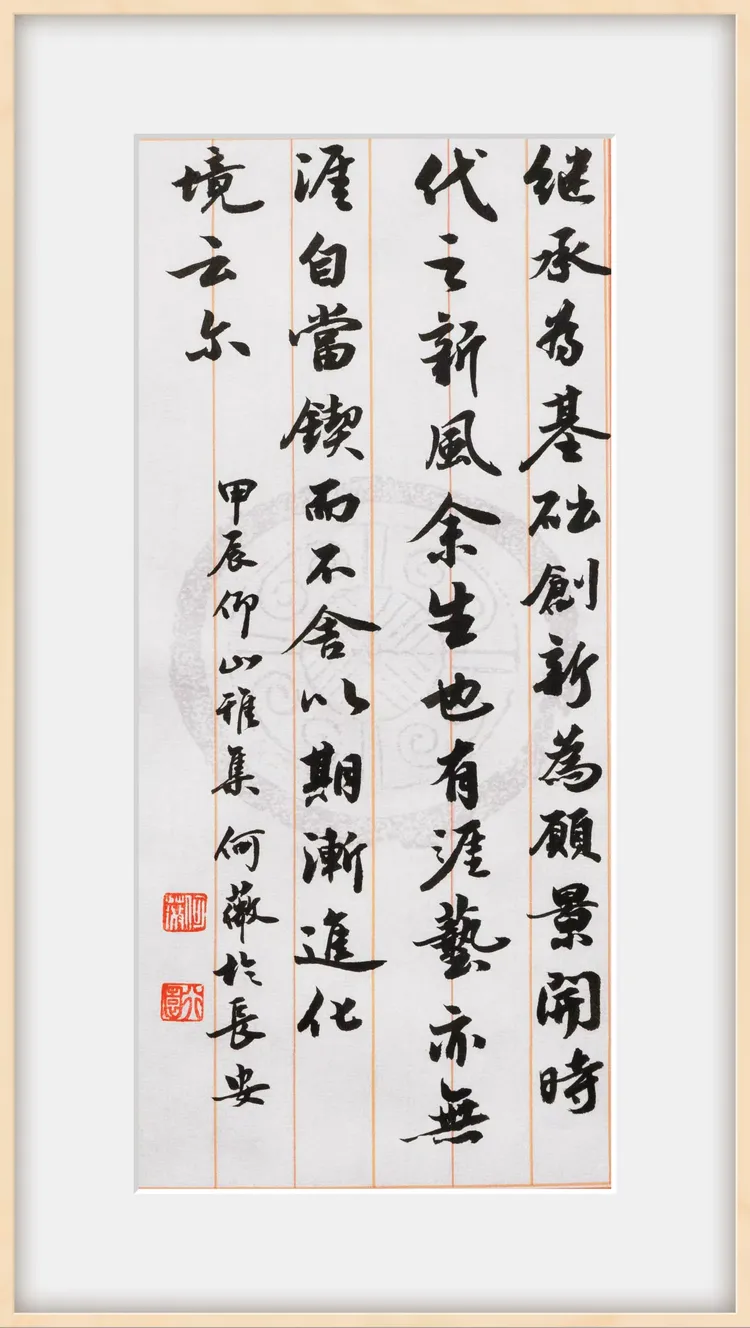 继承为基础創新為願景開時
代之新風余生也有涯藝亦無
涯自當鍥而不舍以期漸進化
境云尔
甲辰仰山雅集何薇於長安
何薇